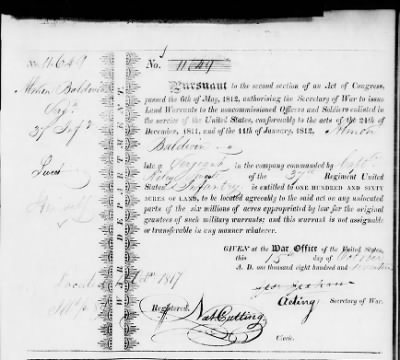 No. 11649
Baldwin
WAR DEPARTMENT.
No. 11649
Pursuant to the second section of an Act of Congress,
passed the 6th of May, 1812, authorising the Secretary of War to issue
Land Warrants to the noncommissioned Officers and Soldiers enlisted in
the service of the United States, conformably to the acts of the 24th of
December, 1811, and of the 11th of January, 1812, Almon
Baldwin
late a Sergeant in the company commanded by Capt.
of the 37th Regiment United
States Infantry, is entitled to ONE HUNDRED AND SIXTY
ACRES OF LAND, to be located agreeably to the said act on any unlocated
parts of the six millions of acres appropriated by law for the original
grantees of such military warrants; and this warrant is not assignable
or transferable in any manner whatever.
GIVEN at the War Office of the United States,
this 15th day of October
A. D. one thousand eight hundred and seventeen
Geo: Graham
Acting Secretary of War.
Registered. Nat Cutting
Clerk.
1817